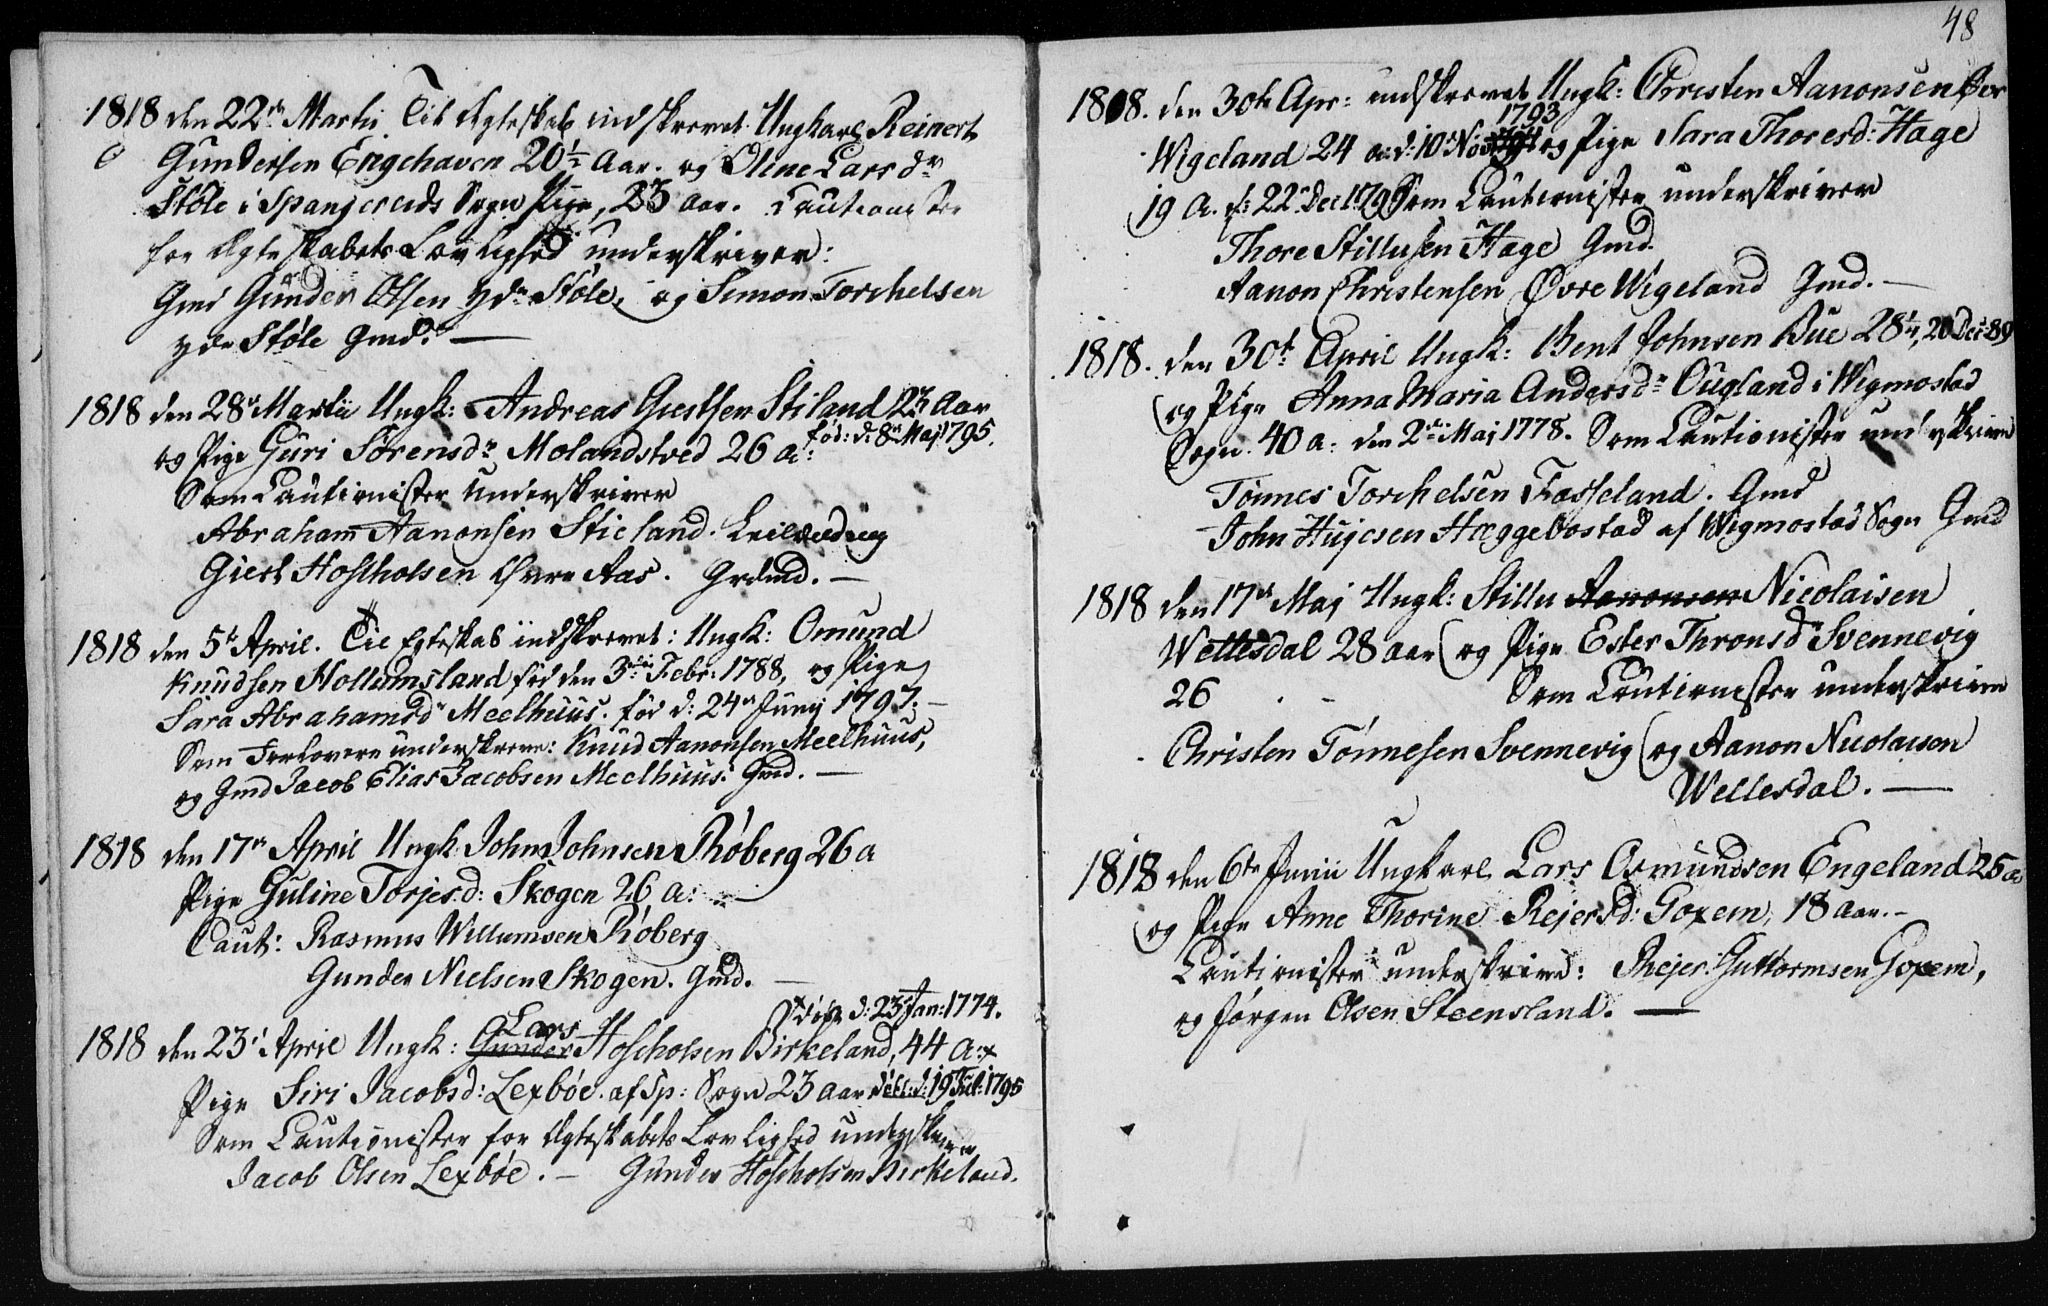 1818 den 22de Martii Til Ægteskab indskrevet Ungkarl Reinert
Gundersen Engehaven 20½ Aar. og Oline Larsdr
Støle i Spangereids Sogn Pige, 23 aar. Cautionister
for Ægteskabets Lovlighed underskriver:
Gmd Gunder Olsen ydr Støle, og Simon Torchelsen
ydr Støle Gmd. —
1818 den 28de Martii Ungk: Andreas Giertsen Stiland 23 Aar
fød: d: 8de Maj 1795.
og Pige Guri Sørensdr Molandstved 26 a:
Som Cautionister underskriver
Abraham Aanonsen Stieland. Leilænding
Giert Hoscholsen Øvre Aas. Grdmd. —
1818 den 5te April. Til Egteskab indskrevet: Ungk: Omund
Knudsen Hollumsland fød den 3die Febr: 1788, og Pige
Sara Abrahamsdr Meelhuus. fød d: 24de Junij 1797. —
Som Forlovere underskrive: Knud Aanonsen Meelhuus,
og Gmd Jacob Elias Jacobsen Meelhuus. Gmd. —
1818 den 17de April Ungk John Johnsen Røberg 26 a
Pige Guline Torjesd: Skogen 26 a: —
Caut: Rasmus Willumsen Røberg
Gunder Nielsen Skogen. Gmd. —
d: 23 Jan: 1774.
Lars
1818 den 23de April Ungk: Gunder Hoscholsen Birkeland, 44 a: x
Pige Siri Jacobsd: Lexbøe. af Sp: Sogn 23 aar d: 19 1795
Som Cautionister for Ægteskabets Lovlighed underskriver
Jacob Olsen Lexbøe. — Gunder Hoscholsen Birkeland.
48
1818. den 30te Apr: indskrevet Ungk: Christen Aanonsen Øvr
1793
Wigeland 24 a: d: 10de Nov og Pige Sara Thoresd: Hage
19 A. f: 22de Dec 179 Som Cautionister underskriver
Thore Stillufsen Hage Gmd.
Aanon Christensen Øvre Wigeland Gmd. —
1818. den 30te April Ungk: Bent Johnsen Bue 28¼, 20 Dec: 89
og Pige Anna Maria Andersdr Ougland i Wigmostad
Sogn. 40 a. den 2den Maj 1778. Som Cautionister underskriver
Tönnes Torchelsen Fasseland. Gmd
John Hujesen Hæggebostad af Wigmostad Sogn Gmd
1818 den 17de Maj Ungk: Stillu Aanonsen Nicolaisen
Wettesdal 28 aar og Pige Ester Thronsdr Svennevig
26 - Som Cautionister underskriver
Christen Tönnesen Svennevig og Aanon Nicolaisen
Wellesdal. —
1818 den 6te Junii Ungkarl Lars Osmundsen Engeland 25 a
og Pige Anne Thorine Rejersd: Goxem, 18 aar. —
Cautionister underskrive: Rejer Guttormsen Goxem,
og Jørgen Olsen Steensland. —